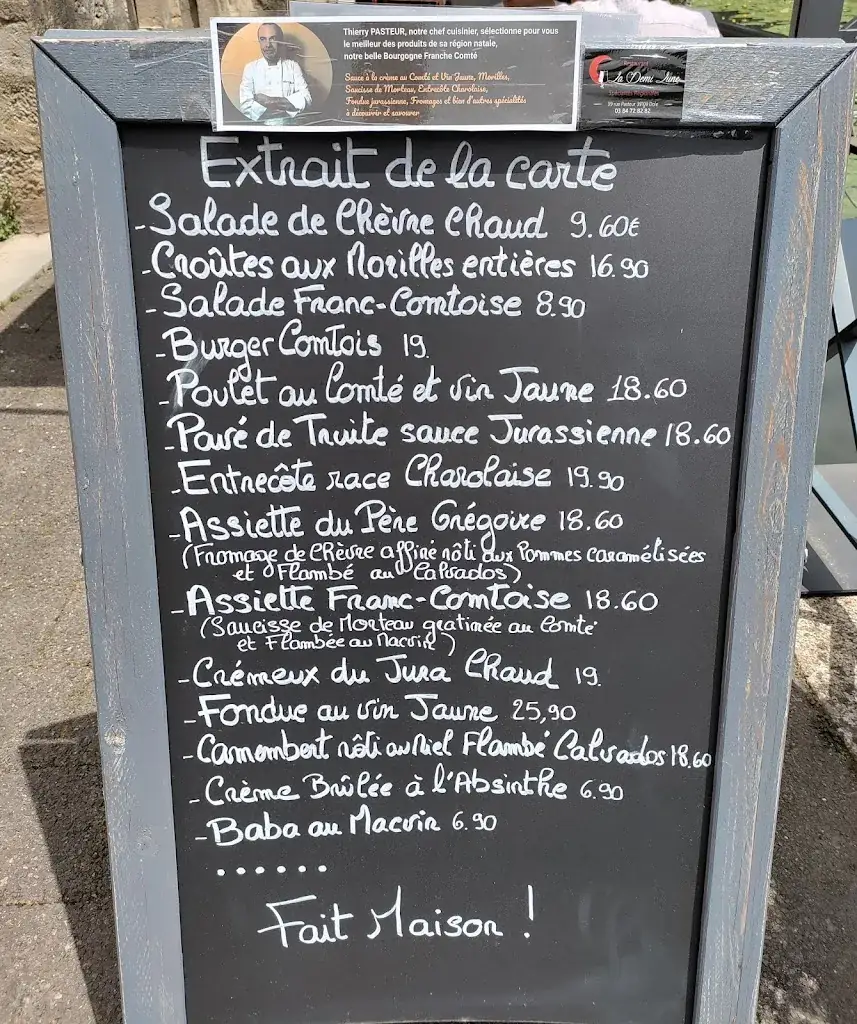 Thierry PASTEUR, notre chef cuisinier, sélectionne pour vous
le meilleur des produits de sa région natale,
notre belle Bourgogne Franche Comté
Sauce à la crème au Comté et Vin Jaune, Morilles,
Saucisse de Morteau, Entrecôte Charolaise,
Fondue jurassienne, Fromages et bien d'autres spécialités
à découvrir et savourer
Restaurant
La Demi Lune
Spécialités Régionales
39 rue Pasteur 39100 Dole
03 84 72 82 82
Extrait de la carte
-Salade de Chèvre Chaud 9.60€
-Croûtes aux Morilles entières 16.90
-Salade Franc-Comtoise 8.90
-Burger Comtois 19.
-Poulet au Comté et vin Jaune 18.60
-Pavé de Truite sauce Jurassienne 18.60
-Entrecôte race Charolaise 19.90
-Assiette du Père Grégoire 18.60
(Fromage de Chèvre affiné rôti aux Pommes caramélisées
et Flambé au Calvados)
-Assiette Franc-Comtoise 18.60
(Saucisse de Morteau gratinée au Comté
et Flambée au Macvin)
-Crémeux du Jura Chaud 19.
-Fondue au vin Jaune 25,90
-Camembert rôti au Miel Flambé Calvados 18.60
-Crème Brûlée à l'Absinthe 6.90
-Baba au Macvin 6.90
......
Fait Maison !